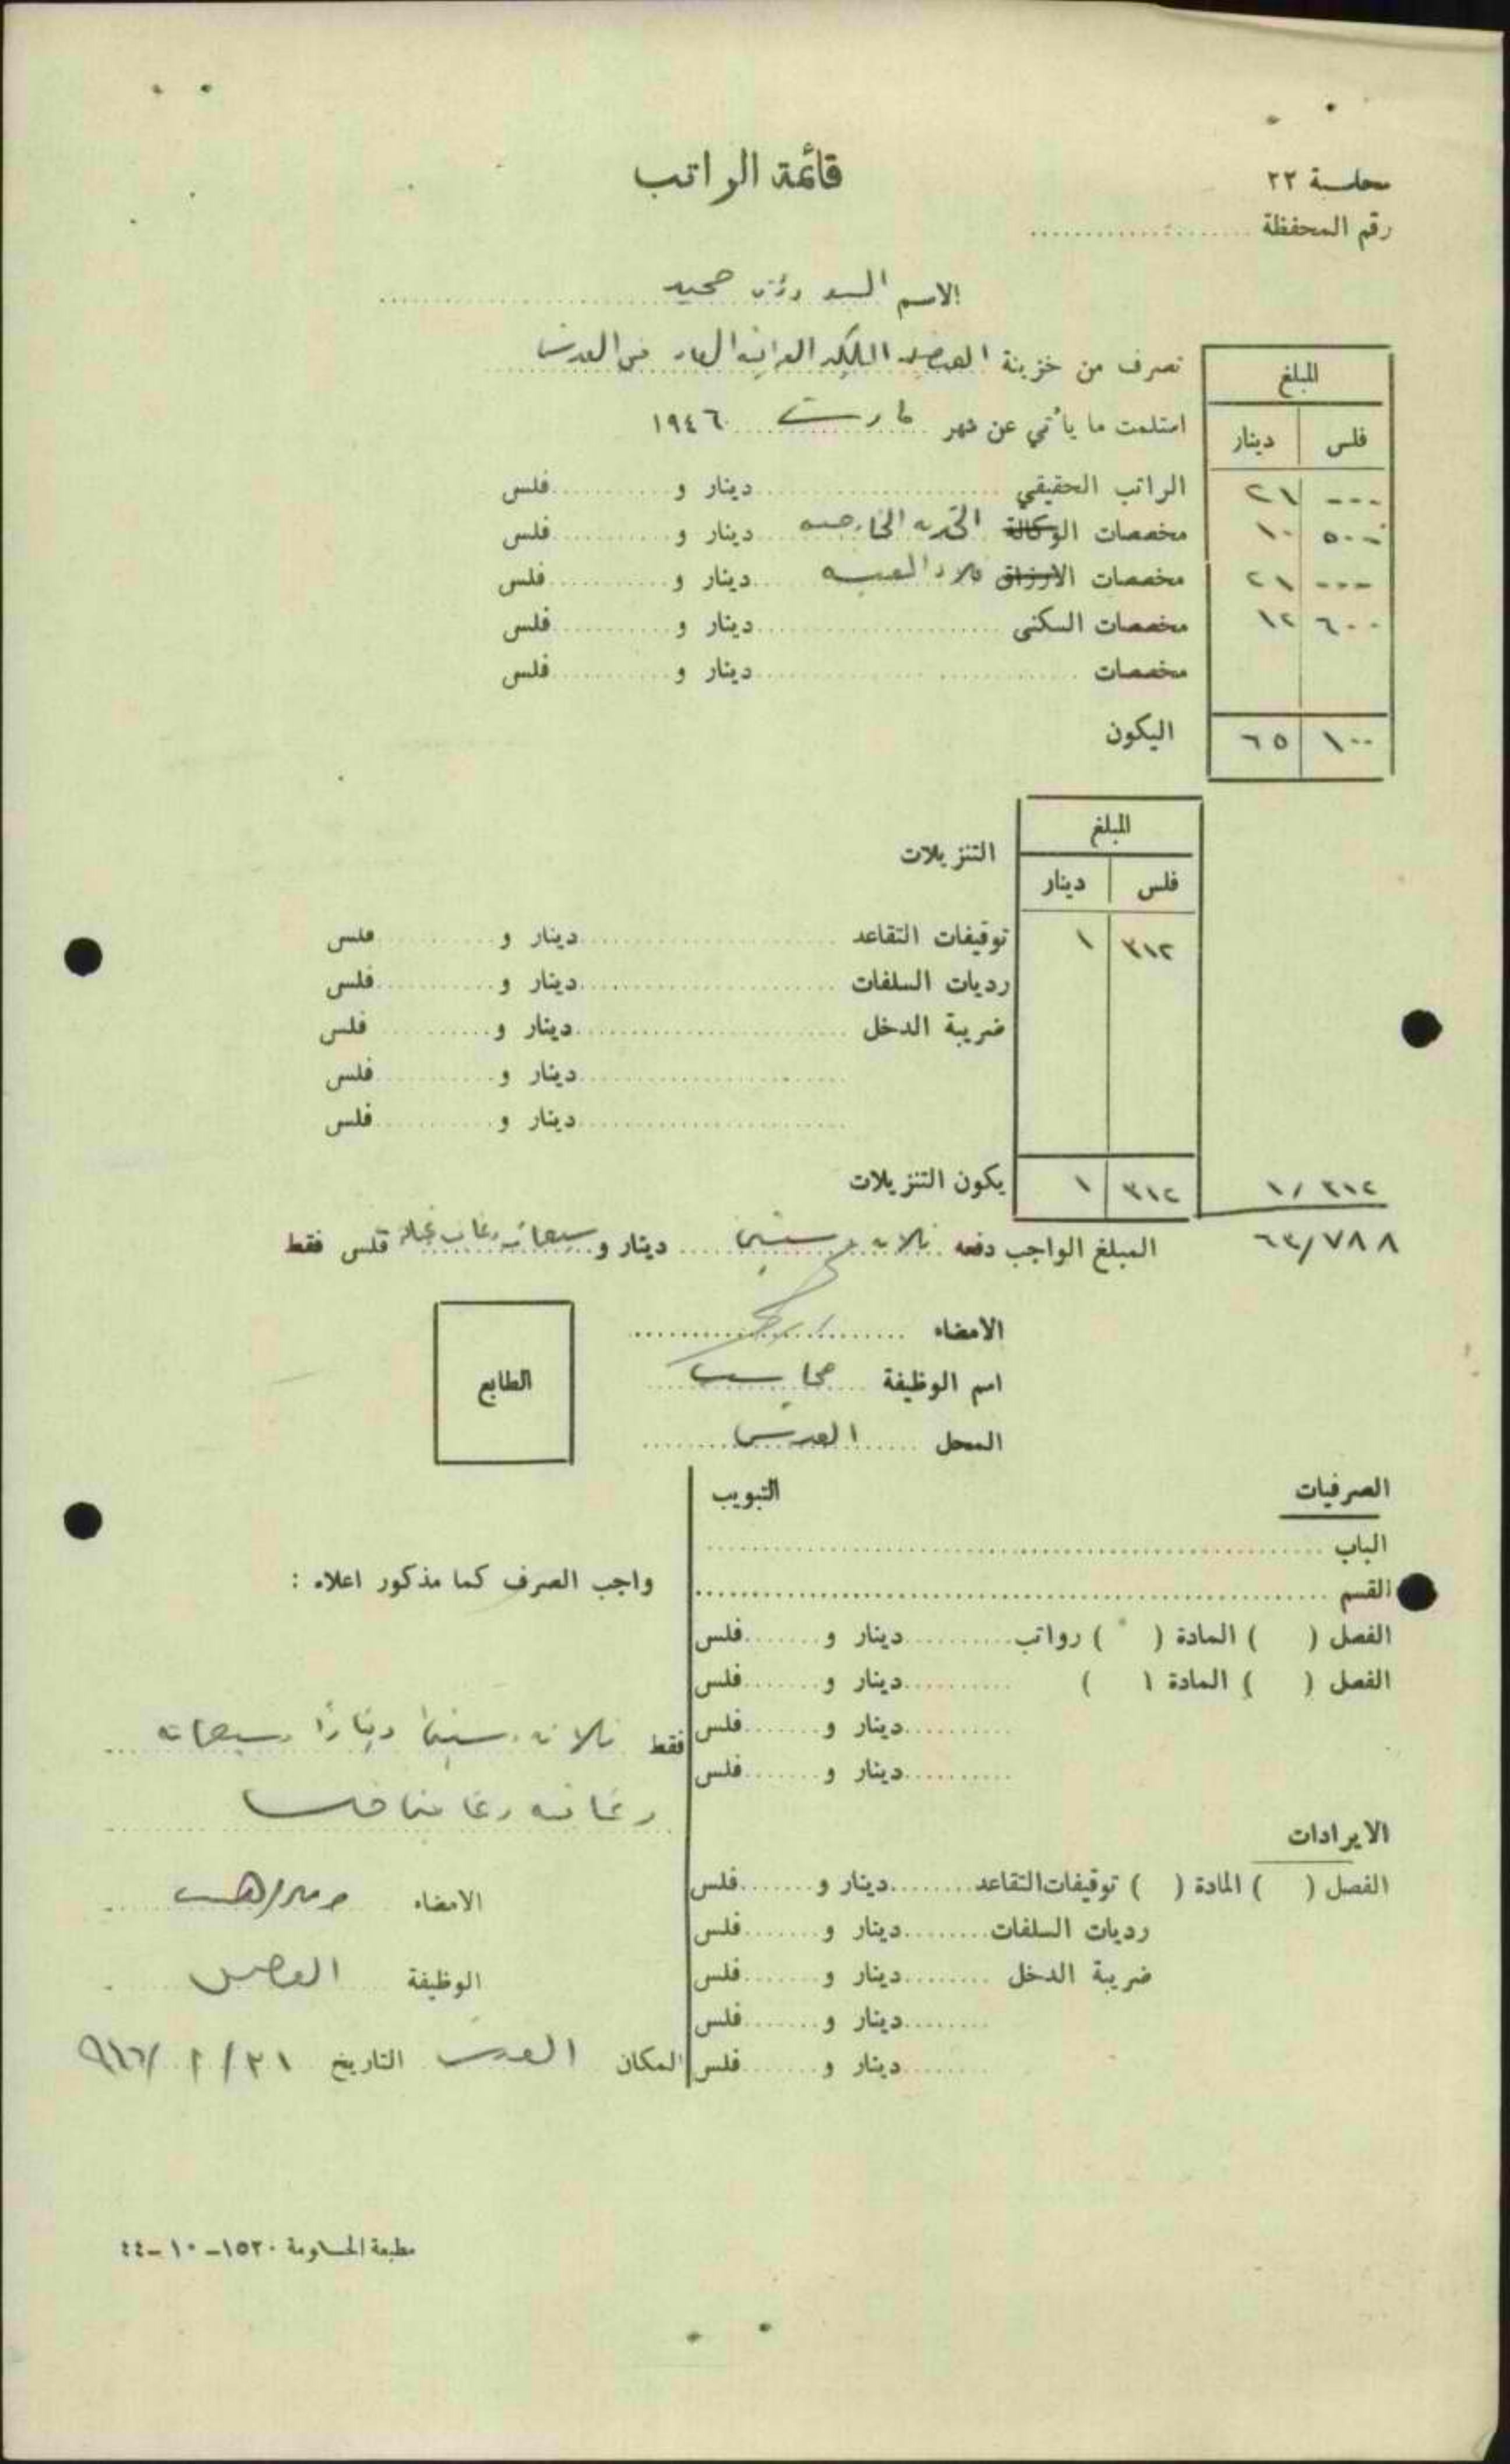 محاسبة ٢٢
قائمة الراتب
رقم المحفظة
الاسم السيد رؤوف حميد
تصرف من خزينة القنصلية الملكية العراقية العامة في القدس
استلمت ما يأتي عن شهر مارت ١٩٤٦
المبلغ
فلس دينار
الراتب الحقيقي دينار و فلس
--- ٢١
مخصصات الوكالة الخدمة الخارجية دينار و فلس
٥٠٠ ١٠
مخصصات الارزاق غلاء المعيشة دينار و فلس
--- ٢١
مخصصات السكنى دينار و فلس
٦٠٠ ١٢
مخصصات دينار و فلس
اليكون
١٠٠ ٦٥
المبلغ
التنزيلات
فلس دينار
توقيفات التقاعد دينار و فلس
٣١٢ ١
رديات السلفات دينار و فلس
ضريبة الدخل دينار و فلس
دينار و فلس
دينار و فلس
يكون التنزيلات
٣١٢ ١
١/٣١٢
٦٣/٧٨٨
المبلغ الواجب دفعه ثلاثة وستين دينار و سبعمائة وثمان وثمانون فلس فقط
الامضاء
اسم الوظيفة محاسب
المحل القدس
الطابع
الصرفيات
التبويب
الباب
القسم
الفصل ( ) المادة ( ) رواتب دينار و فلس
الفصل ( ) المادة ( ) دينار و فلس
دينار و فلس
دينار و فلس
الايرادات
الفصل ( ) المادة ( ) توقيفات التقاعد دينار و فلس
رديات السلفات دينار و فلس
ضريبة الدخل دينار و فلس
دينار و فلس
دينار و فلس
واجب الصرف كما مذكور اعلاه :
فقط ثلاثة وستين دينارًا وسبعمائة
وثمانية وثمانين فلسا
الامضاء
الوظيفة القنصل
المكان القدس التاريخ ٣١/٣/٩٤٦
مطبعة الحكومة ١٥٢٠-١٠-٤٤